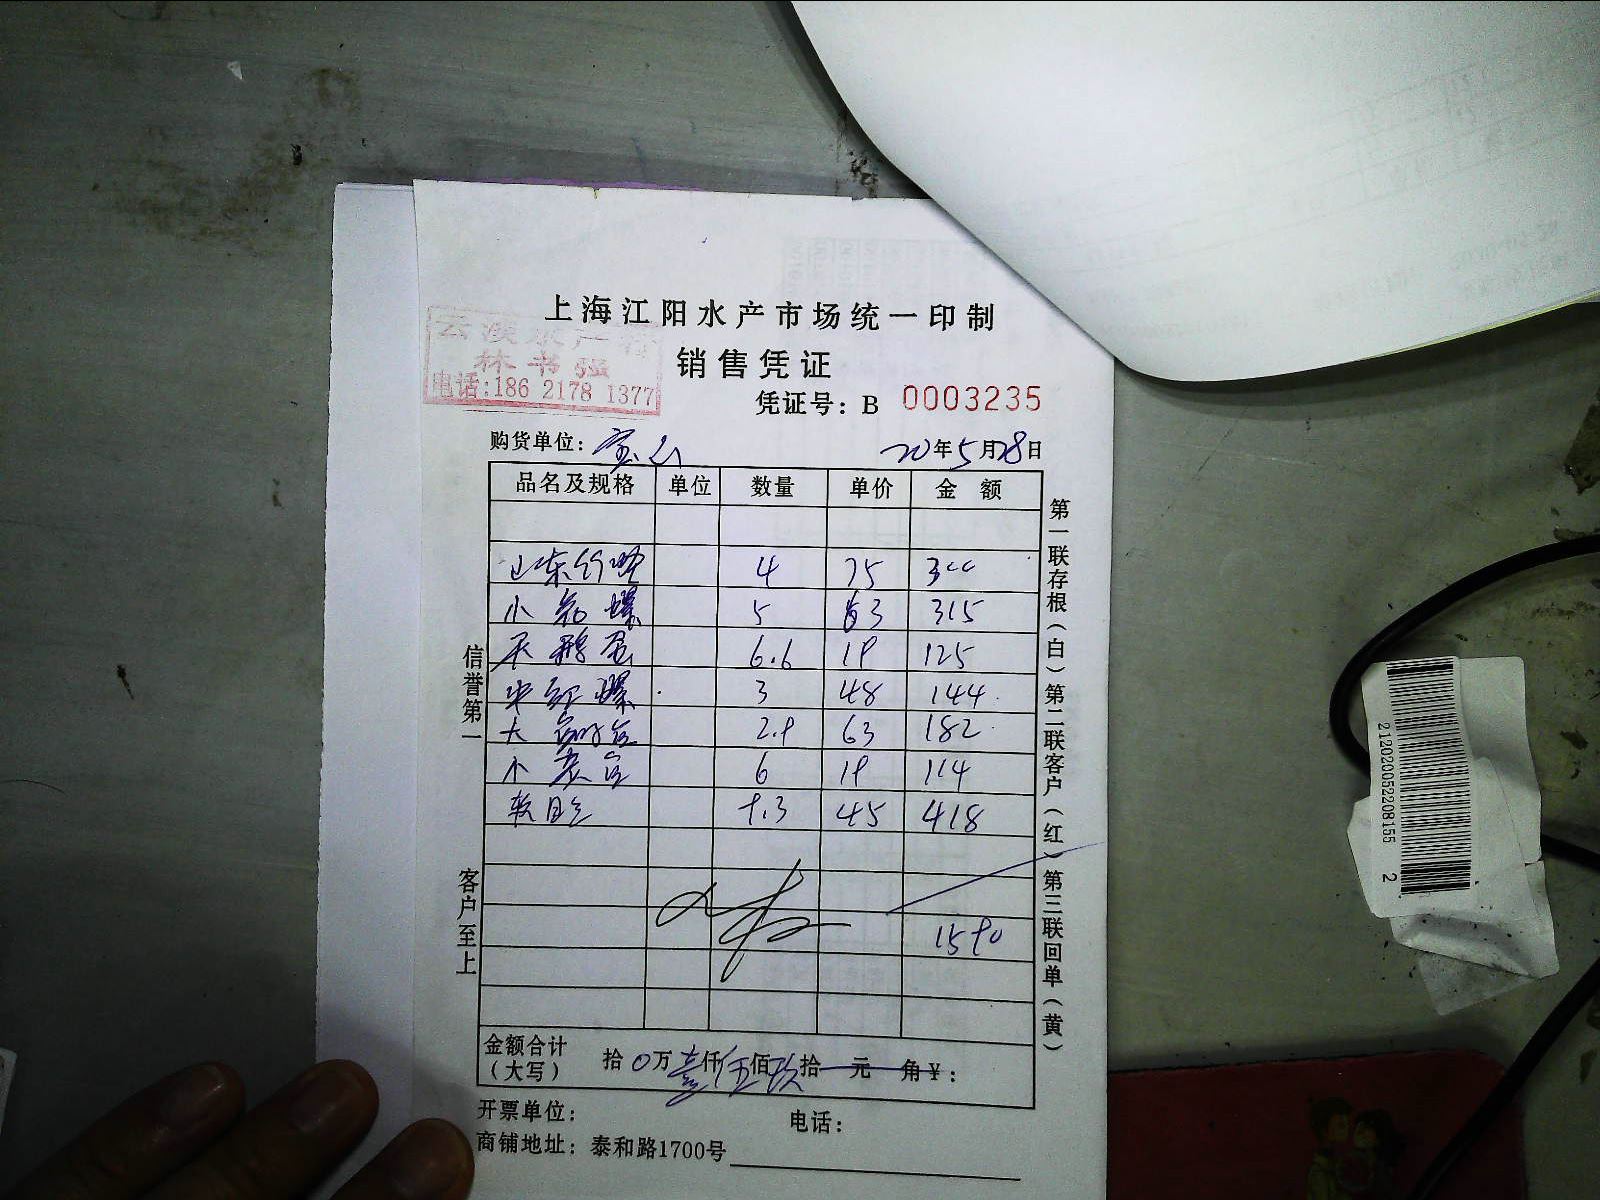 上海江阳水产市场统一印制
销售凭证
云溪水产
林书强
电话:186 2178 1377
凭证号: B 0003235
购货单位: 宝山 20年5月28日
品名及规格 单位 数量 单价 金额
山东竹蛏 4 75 300
小 螺 5 63 315
天鹅蛋 6.6 19 125
中红螺 3 48 144
大 2.9 63 182
小 6 19 114
软 9.3 45 418
1590
金额合计
(大写) 拾0万壹仟伍佰玖拾 元 角¥:
开票单位: 电话:
商铺地址: 泰和路1700号
信誉第一
客户至上
第一联存根(白)第二联客户(红)第三联回单(黄)
212020052208155 2